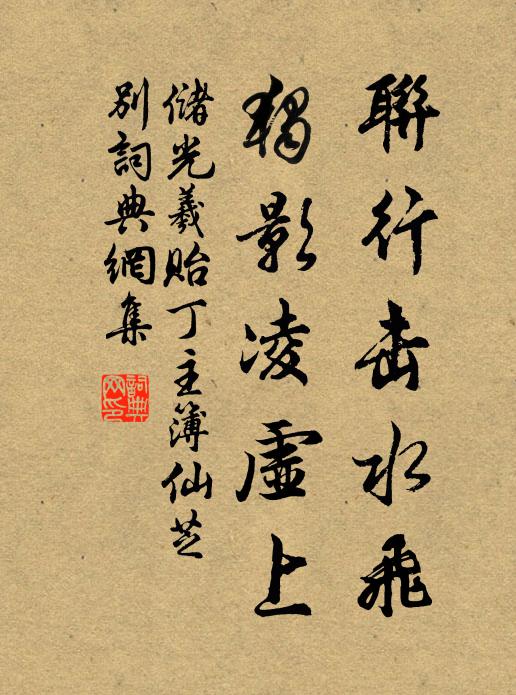 聯行击水飛
獨影凌虛上
儲光羲貽丁主簿仙芝
別詞典網集
詞典網印